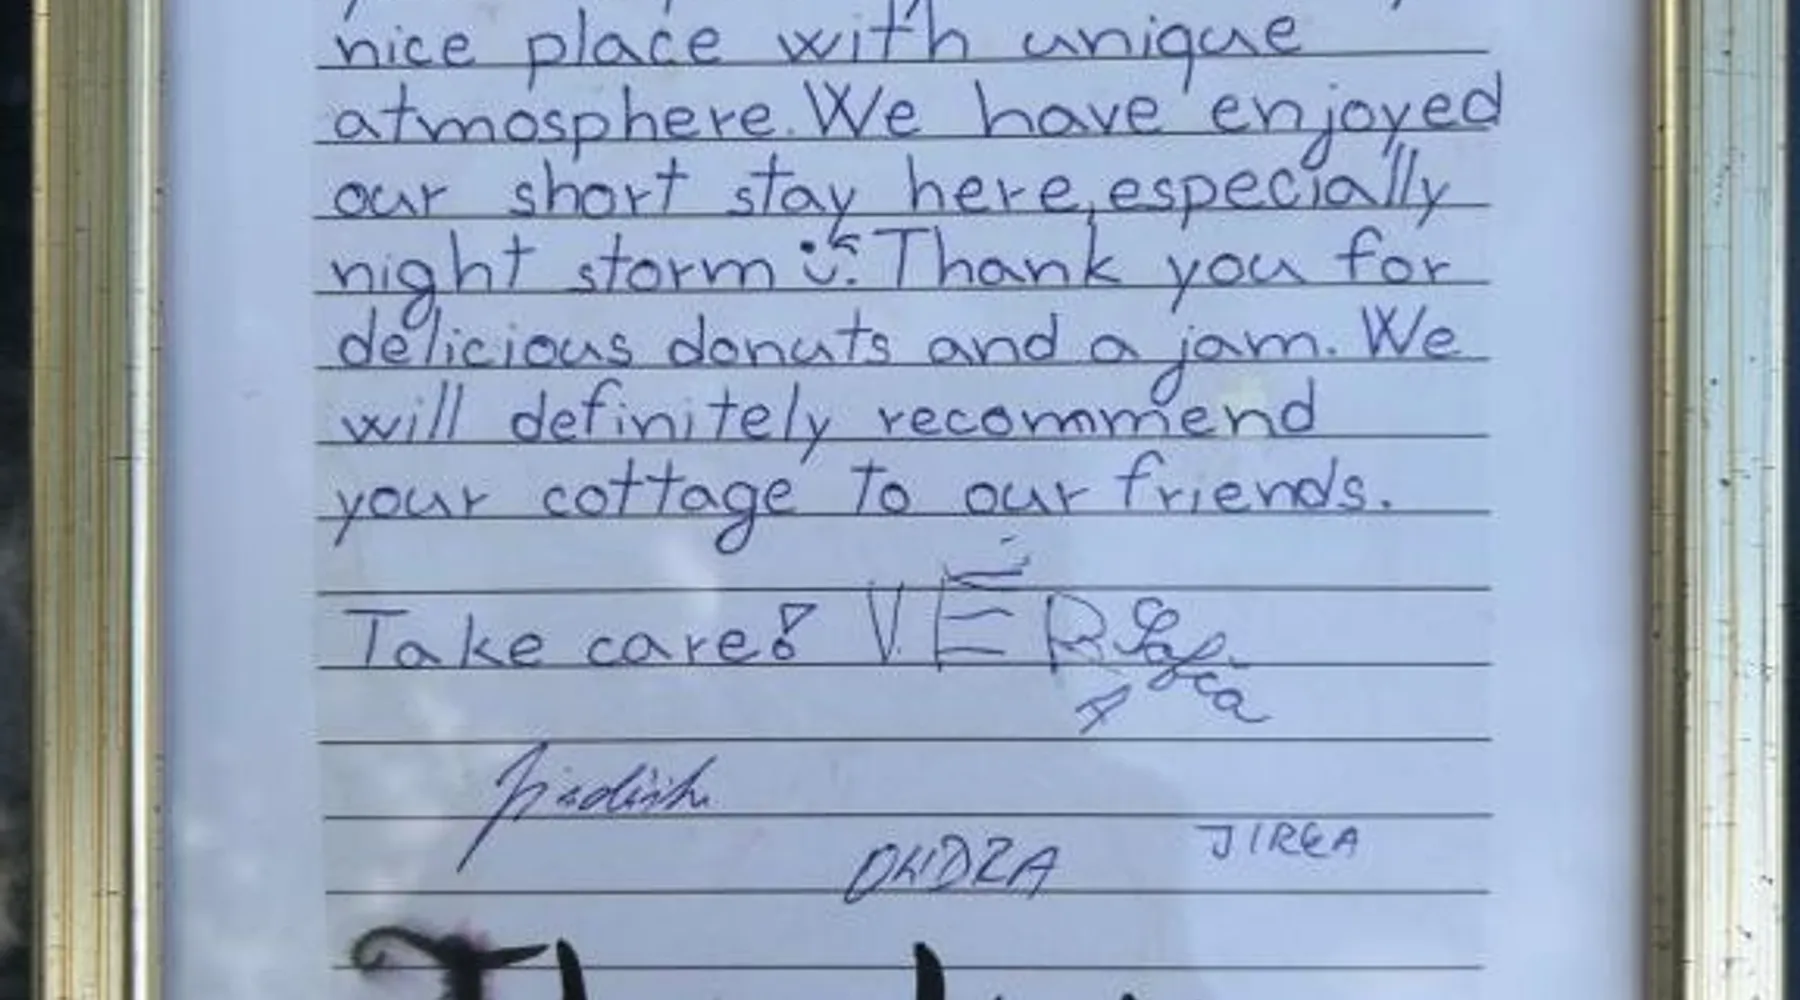 nice place with unique
atmosphere. We have enjoyed
our short stay here, especially
night storm :). Thank you for
delicious donuts and a jam. We
will definitely recommend
your cottage to our friends.
Take care! VĚRA Sofča
ONDRA
JIRKA